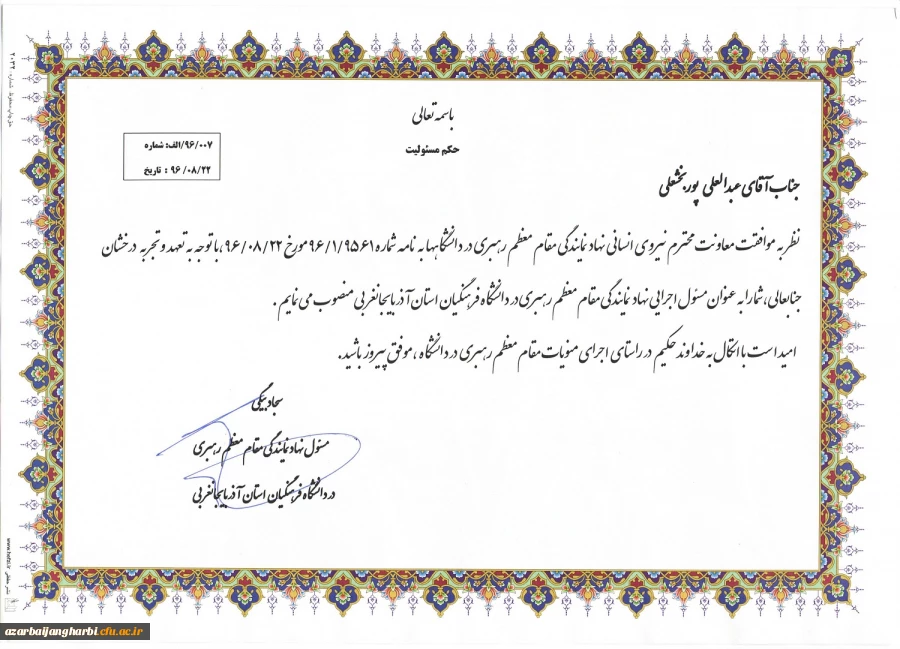 باسمه تعالی
حکم مسئولیت
۹۶/۰۰۷/الف: شماره
۹۶ /۰۸/۲۲ : تاریخ
جناب آقای عبدالعلی پوربخشعلی
نظر به موافقت معاونت محترم نیروی انسانی نهاد نمایندگی مقام معظم رهبری در دانشگاهها به نامه شماره ۹۶/۱/۹۵۶۱ مورخ ۹۶/۰۸/۲۲ با توجه به تعهد و تجربه درخشان
جنابعالی، شما را به عنوان مسئول اجرایی نهاد نمایندگی مقام معظم رهبری در دانشگاه فرهنگیان استان آذربایجانغربی منصوب می نمایم .
امید است با اتکال به خداوند حکیم در راستای اجرای منویات مقام معظم رهبری در دانشگاه ، موفق پیروز باشید.
سجاد بیگی
مسئول نهاد نمایندگی مقام معظم رهبری
در دانشگاه فرهنگیان استان آذربایجانغربی
azarbaijangharbi.cfu.ac.ir